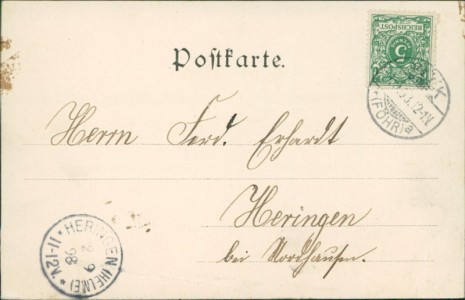 Postkarte.
5
REICHSPOST
WYK
(FÖHR) a
12-1N.
Herrn Ferd. Erhardt
Heringen
bei Nordhausen.
HERINGEN (HELME)
2 9
98
11-12 N.